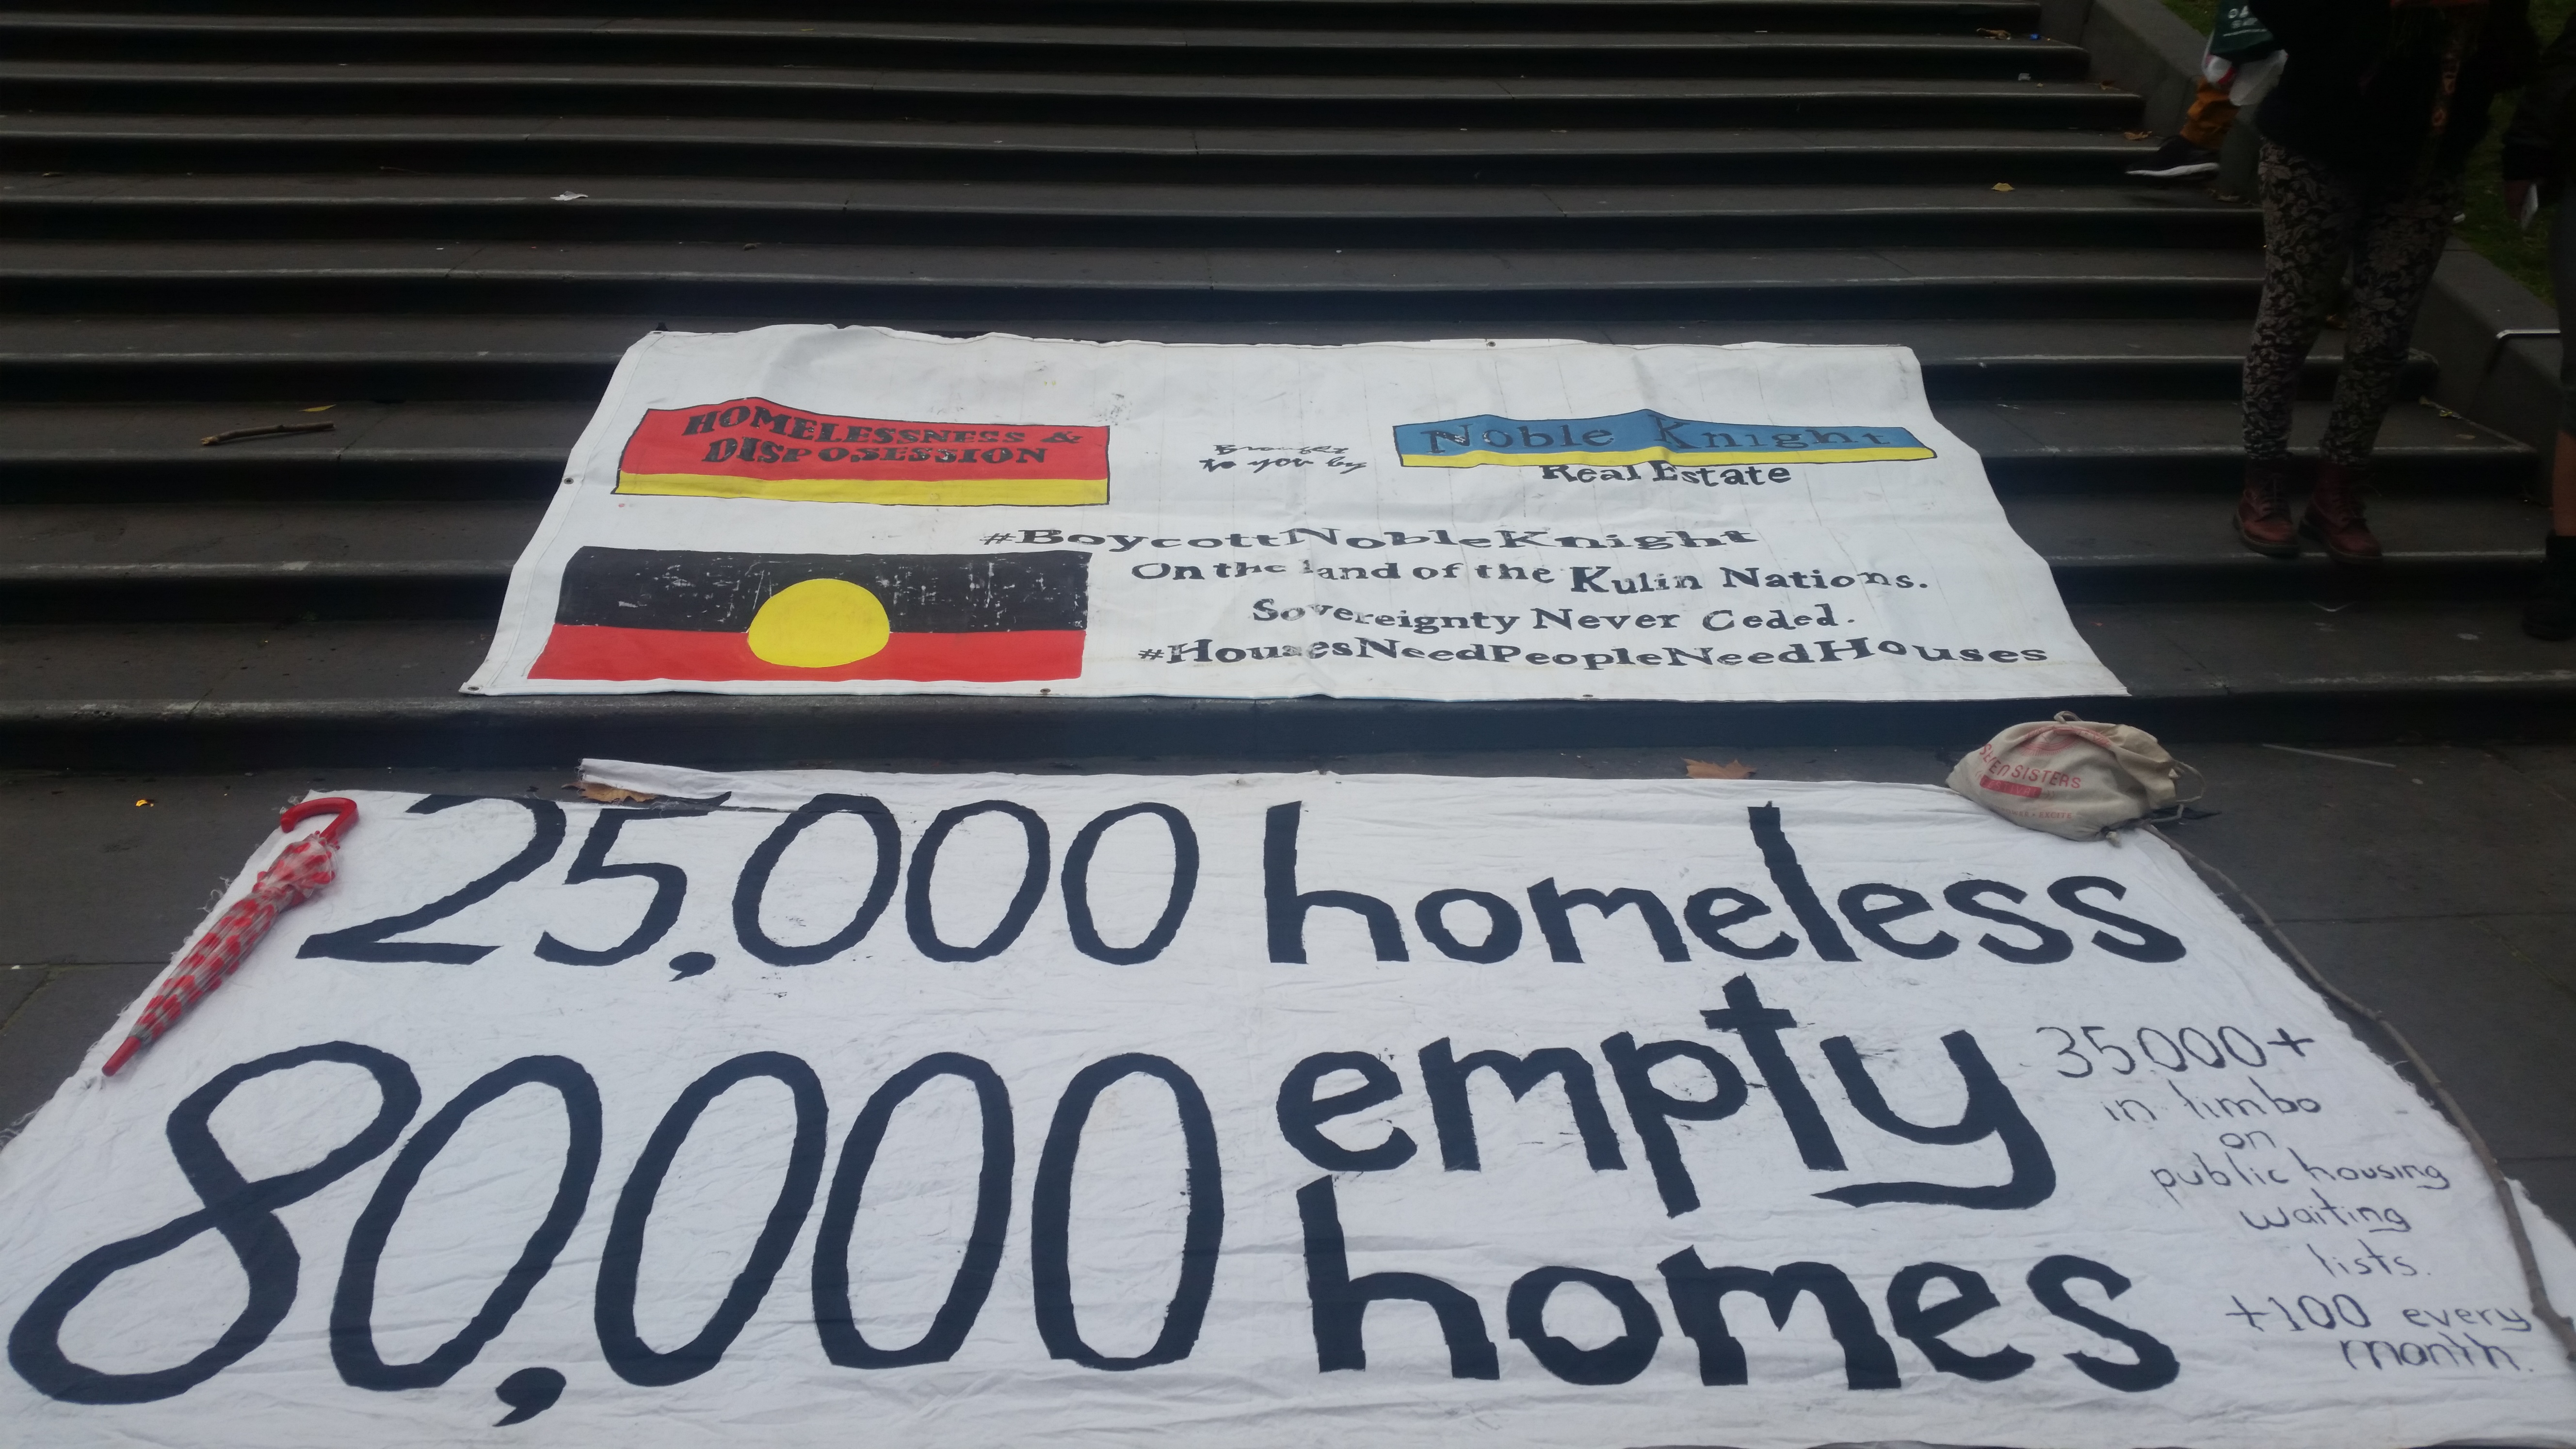 HOMELESSNESS &
DISPOSESSION
Brought
to you by
Noble Knight
Real Estate
#BoycottNobleKnight
On the land of the Kulin Nations.
Sovereignty Never Ceded.
#HousesNeedPeopleNeedHouses
SEVEN SISTERS
25,000 homeless
80,000 empty
homes
35.000+
in limbo
on
public housing
waiting
lists.
+100 every
month.